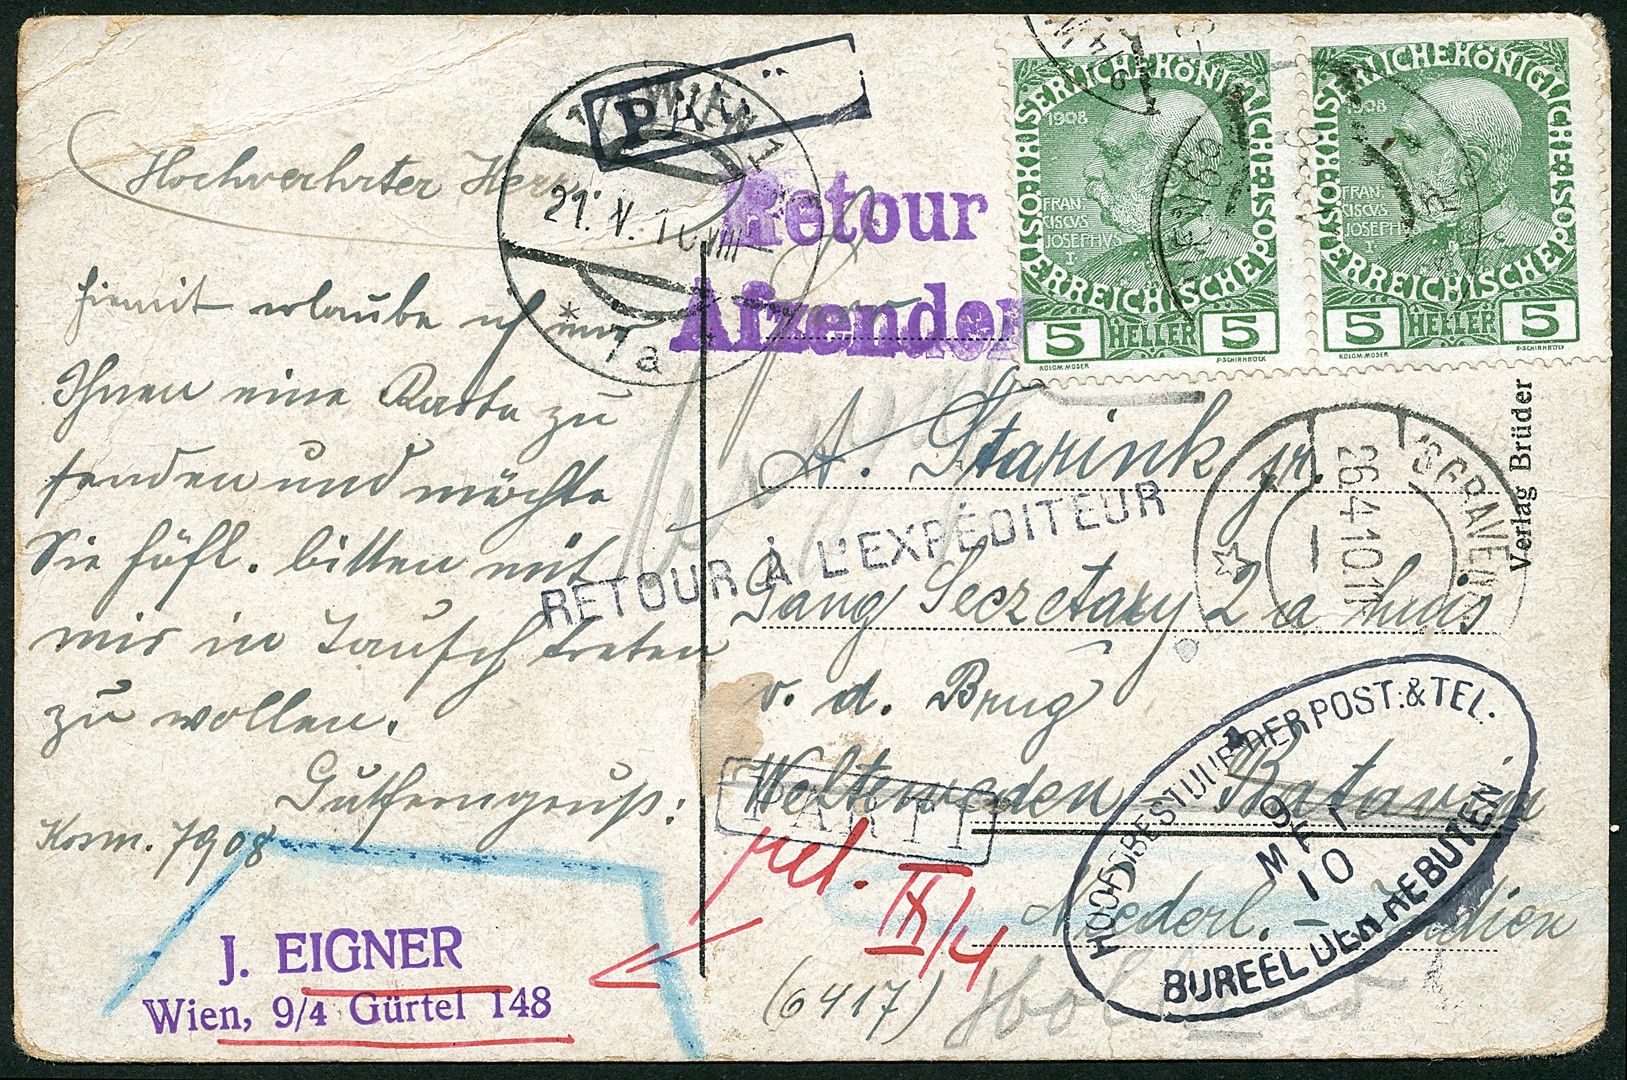 Hochverehrter Herr
hiemit erlaube ich mir
Ihnen eine Karte zu
senden und möchte
Sie höfl. bitten mit
mir in Tausch treten
zu wollen.
Gutferngruß:
Kosm. 7908
J. EIGNER
Wien, 9/4 Gürtel 148
WIEN 1
21. V. 10 VIII
* 1a *
Retour
Afzender
KAISERLICHE KÖNIGLICHE ÖSTERREICHISCHE POST
1908
FRAN
CISCVS
JOSEPHVS
I
5 HELLER 5
KOLOM. MOSER
F. SCHIRNBÖCK
KAISERLICHE KÖNIGLICHE ÖSTERREICHISCHE POST
1908
FRAN
CISCVS
JOSEPHVS
I
5 HELLER 5
KOLOM. MOSER
F. SCHIRNBÖCK
A. Starink jr.
RETOUR À L'EXPÉDITEUR
Gang Secretary 2 a huis
v. d. Brug
Weltevreden - Batavia
Nederl. - Indien
PARTI
ret. IX/4
(6417) Holland
26.4.10.
Verlag Brüder
HOOFDBESTUUR DER POST. & TEL.
9
MEI
10
BUREEL DER REBUTEN